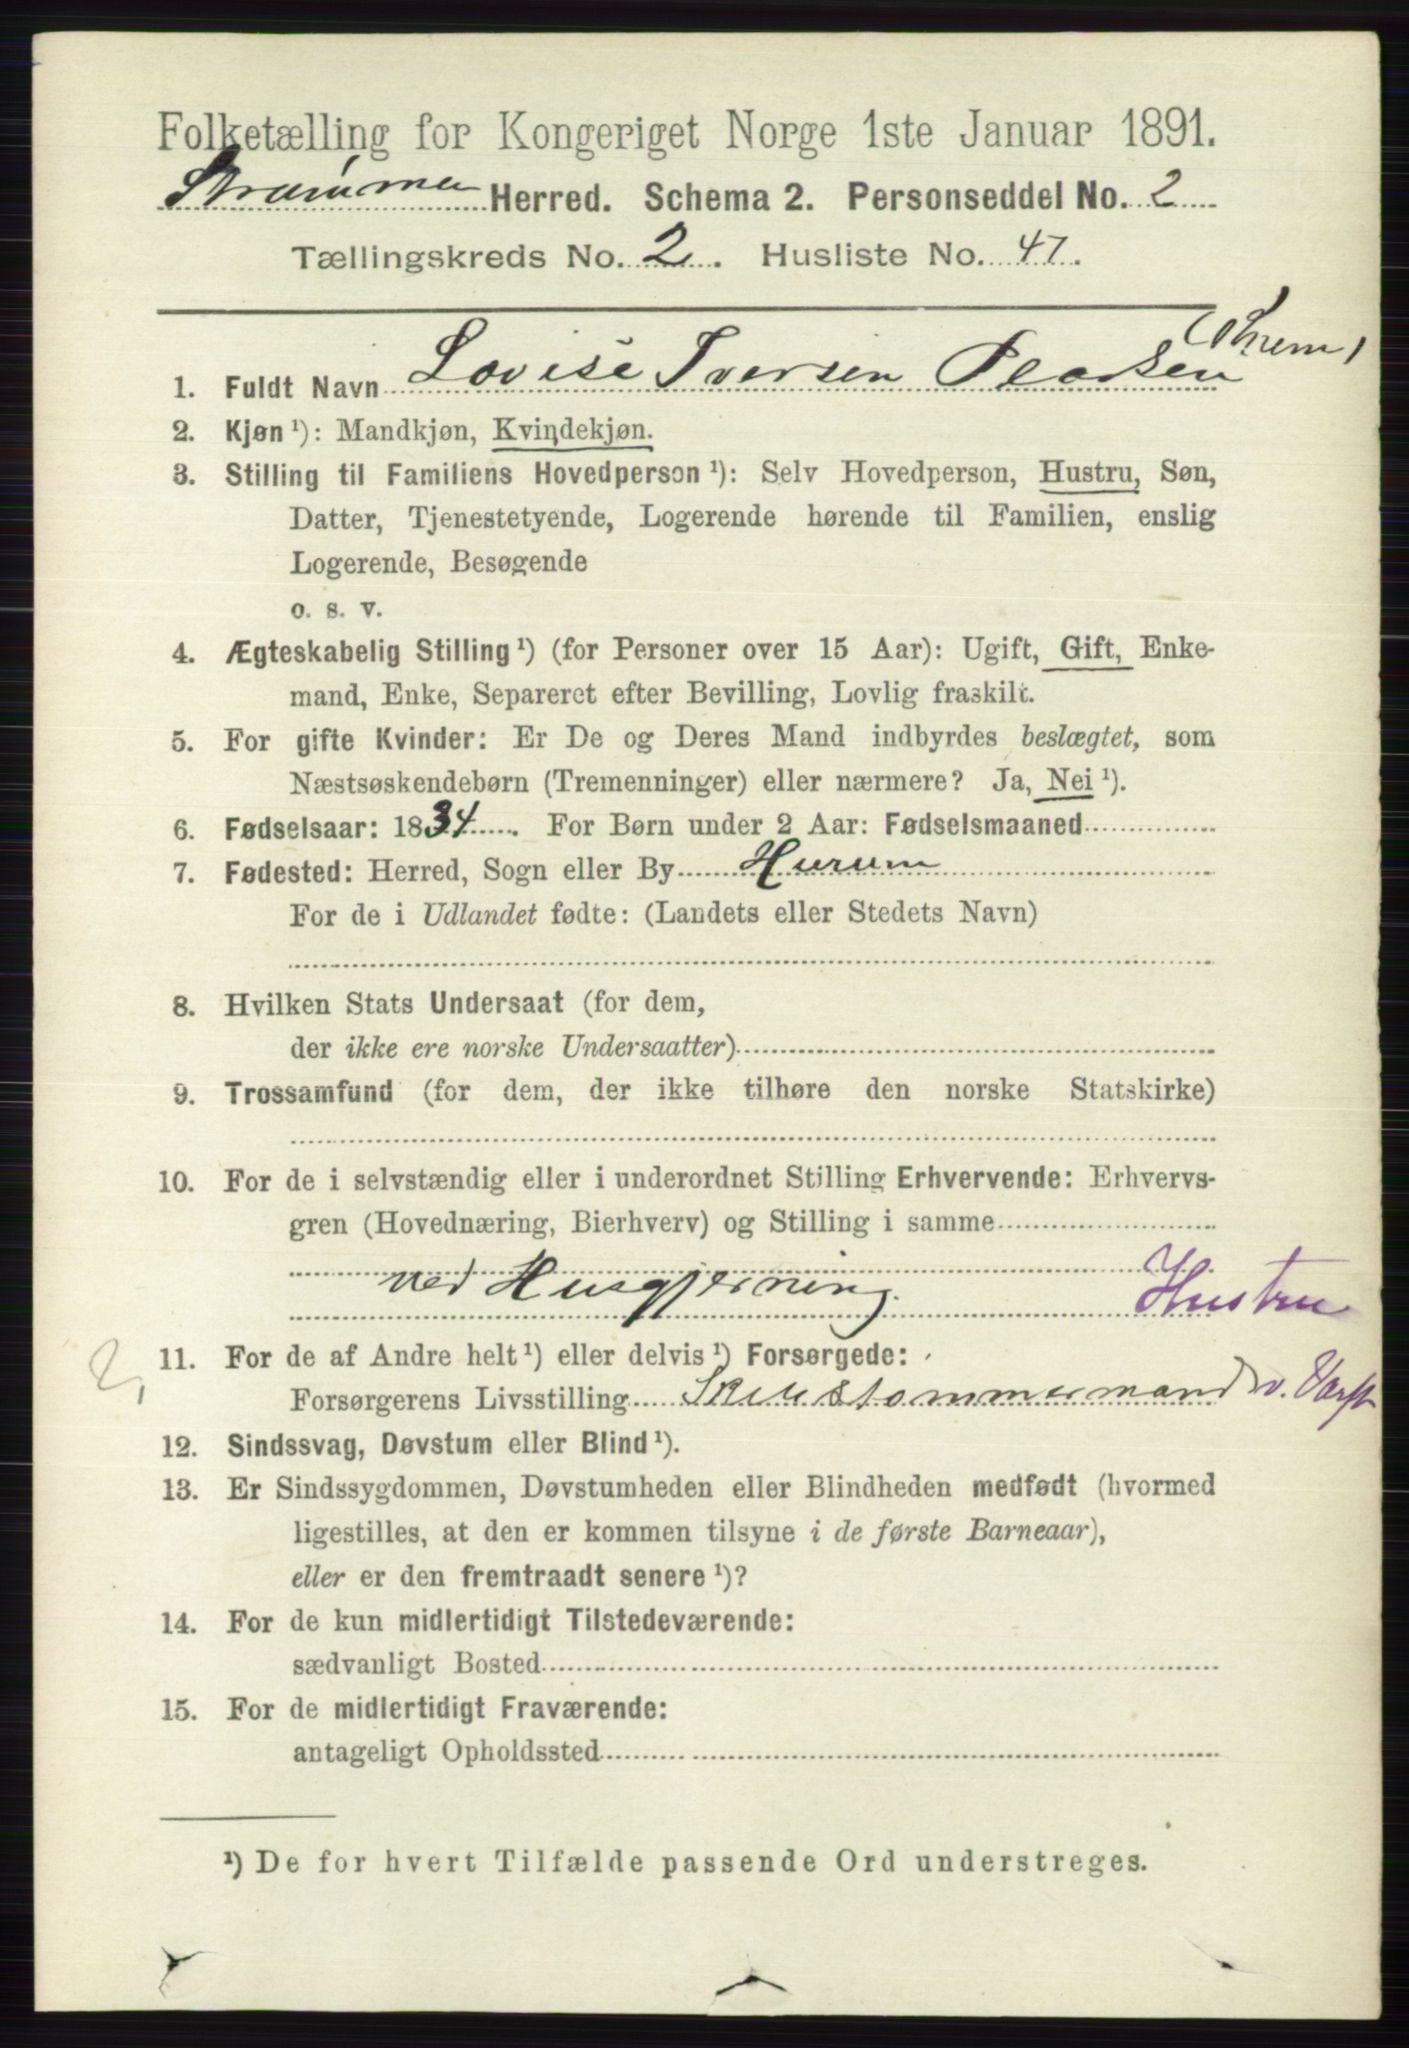 Folketælling for Kongeriget Norge 1ste Januar 1891.
Strømmen Herred. Schema 2. Personseddel No. 2
Tællingskreds No. 2. Husliste No. 47.
1. Fuldt Navn Lovise Iversen
2. Kjøn ¹): Mandkjøn, Kvindekjøn.
3. Stilling til Familiens Hovedperson ¹): Selv Hovedperson, Hustru, Søn,
Datter, Tjenestetyende, Logerende hørende til Familien, enslig
Logerende, Besøgende
o. s. v.
4. Ægteskabelig Stilling ¹) (for Personer over 15 Aar): Ugift, Gift, Enke-
mand, Enke, Separeret efter Bevilling, Lovlig fraskilt.
5. For gifte Kvinder: Er De og Deres Mand indbyrdes beslægtet, som
Næstsøskendebørn (Tremenninger) eller nærmere? Ja, Nei ¹).
6. Fødselsaar: 1834. For Børn under 2 Aar: Fødselsmaaned
7. Fødested: Herred, Sogn eller By Hurum
For de i Udlandet fødte: (Landets eller Stedets Navn)
8. Hvilken Stats Undersaat (for dem,
der ikke ere norske Undersaatter)
9. Trossamfund (for dem, der ikke tilhøre den norske Statskirke)
10. For de i selvstændig eller i underordnet Stilling Erhvervende: Erhvervs-
gren (Hovednæring, Bierhverv) og Stilling i samme
ved Husgjerning. Hustru
11. For de af Andre helt ¹) eller delvis ¹) Forsørgede:
Forsørgerens Livsstilling Skibstømmermand v. Værft
12. Sindssvag, Døvstum eller Blind ¹).
13. Er Sindssygdommen, Døvstumheden eller Blindheden medfødt (hvormed
ligestilles, at den er kommen tilsyne i de første Barneaar),
eller er den fremtraadt senere ¹)?
14. For de kun midlertidigt Tilstedeværende:
sædvanligt Bosted
15. For de midlertidigt Fraværende:
antageligt Opholdssted
¹) De for hvert Tilfælde passende Ord understreges.